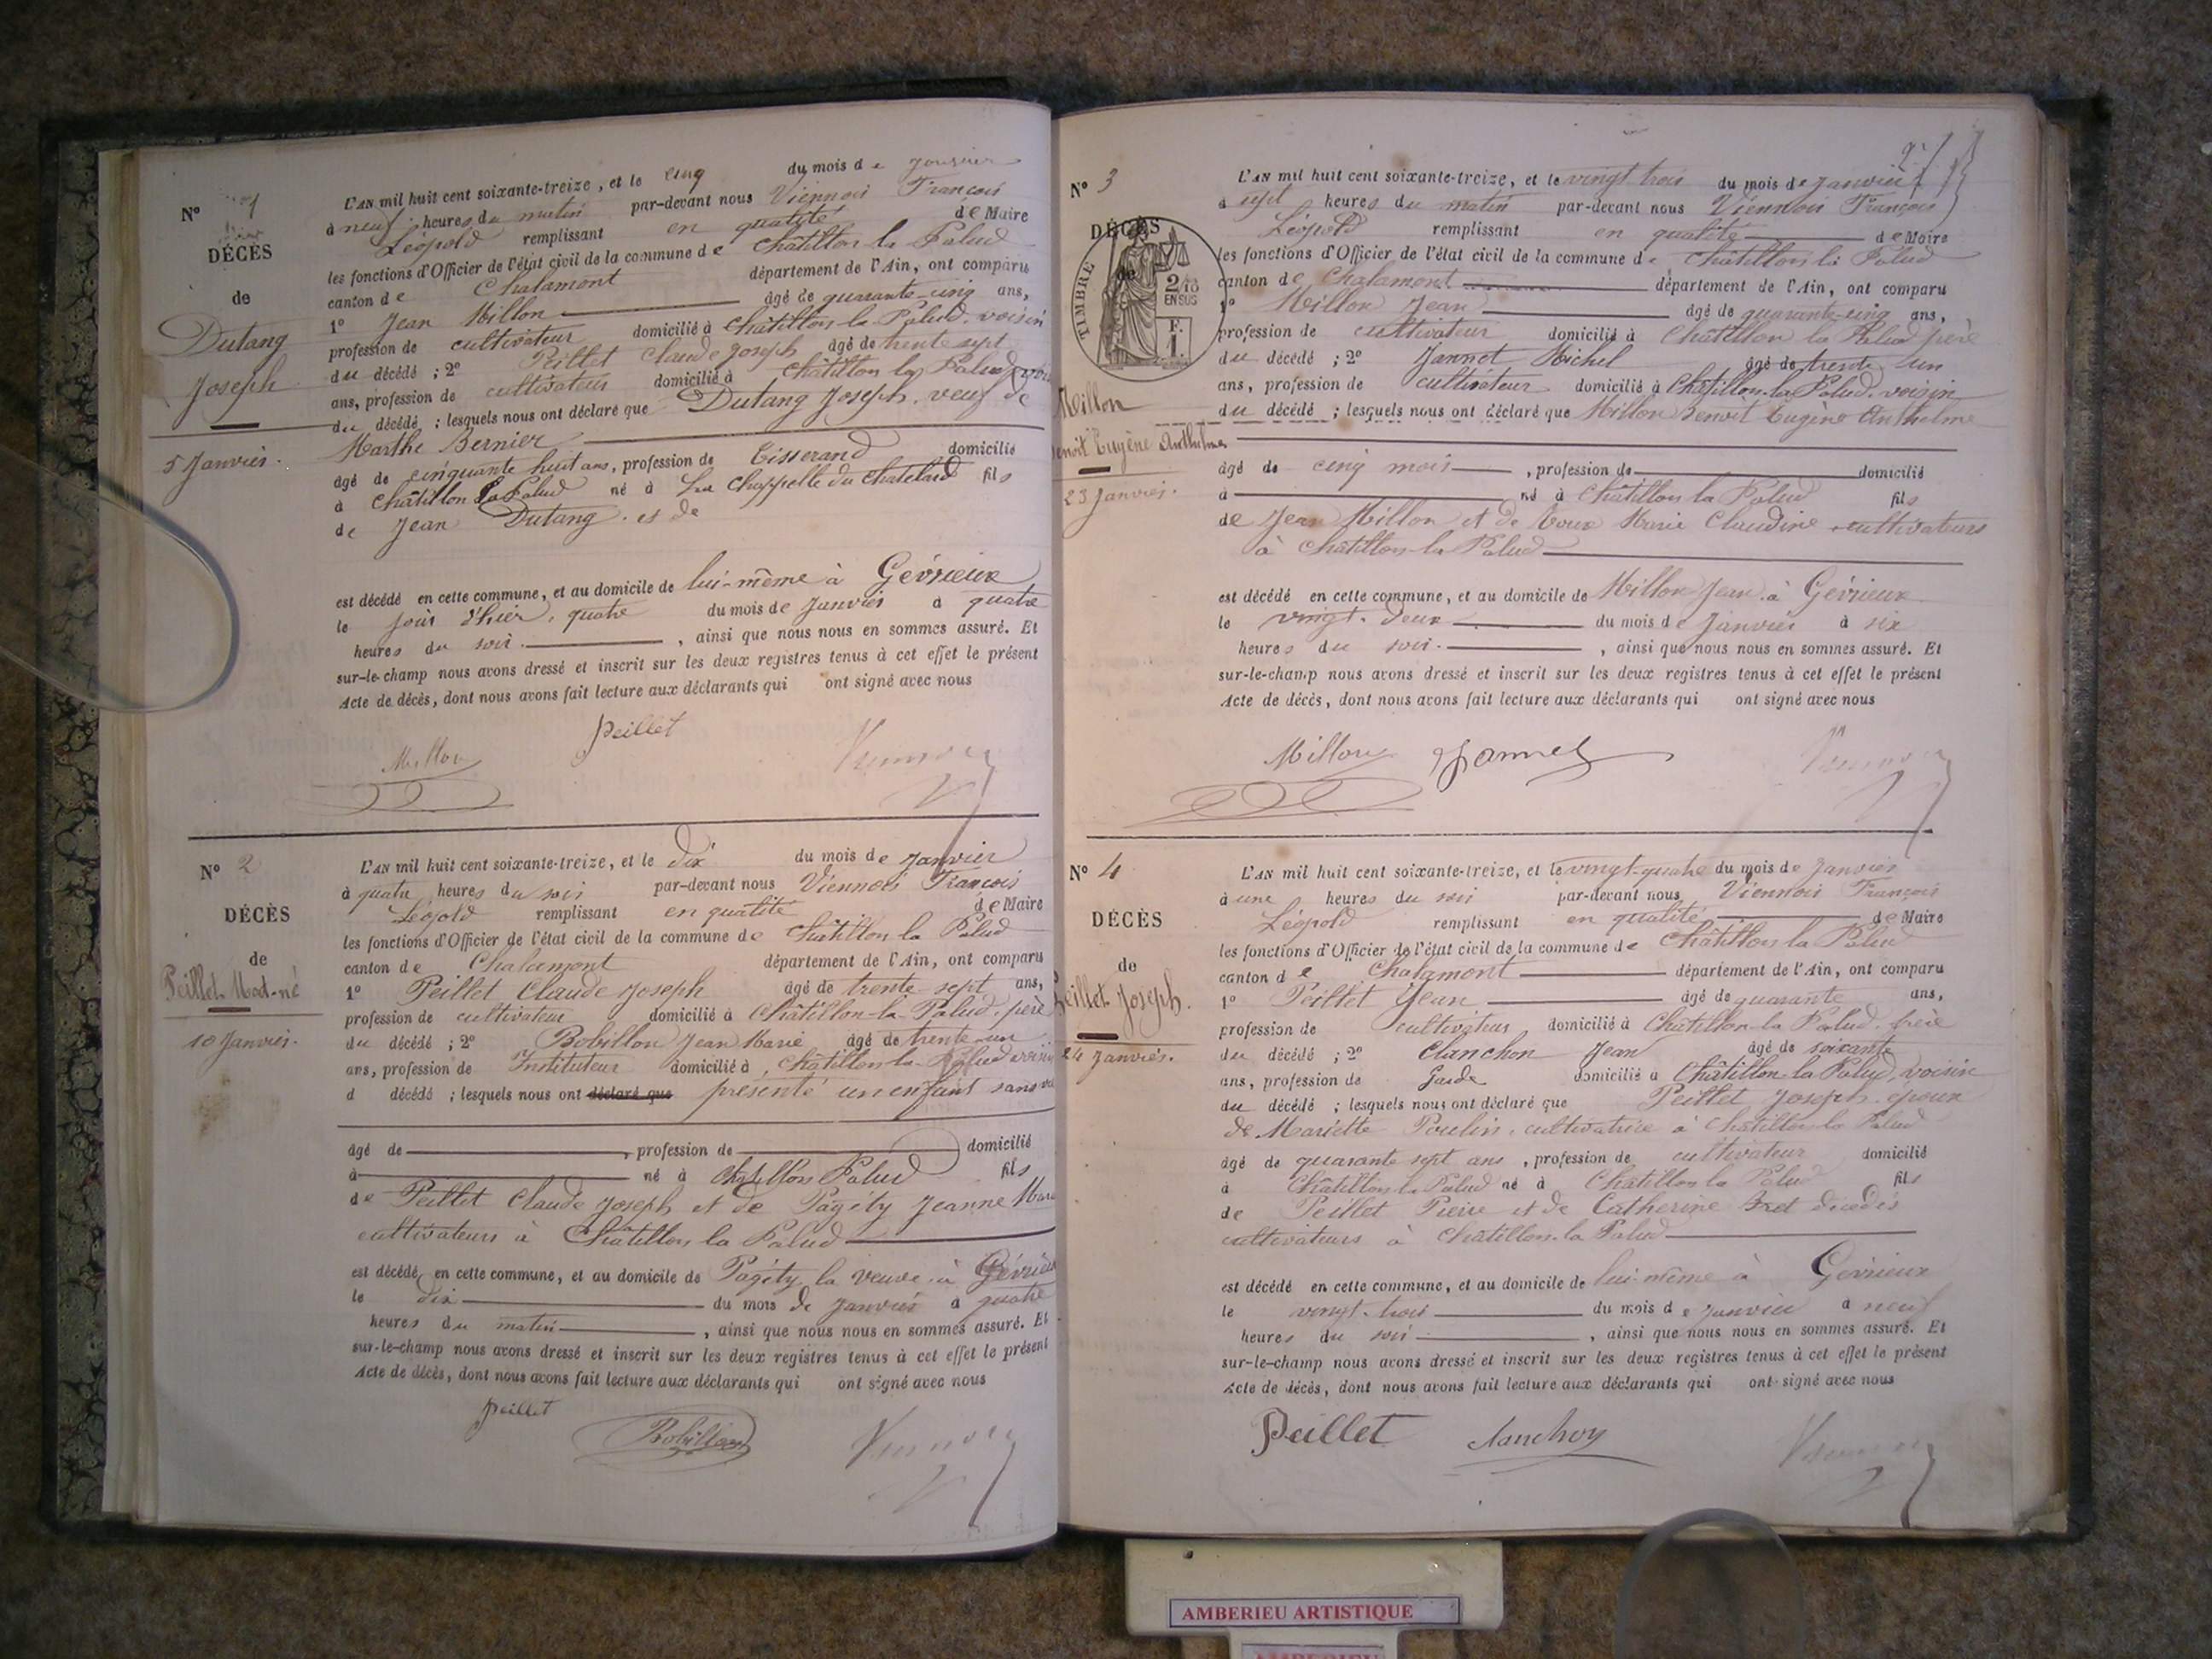 N° 1
DÉCÈS
de
Dutang
Joseph
5 Janvier.
L'AN mil huit cent soixante-treize, et le cinq du mois de Janvier
à neuf heures du matin par-devant nous Viennois François
Léopold remplissant en qualité de Maire
les fonctions d'Officier de l'état civil de la commune de Châtillon la Palud
canton de Chalamont département de l'Ain, ont comparu
1° Jean Millon âgé de quarante-cinq ans,
profession de cultivateur domicilié à Châtillon la Palud, voisin
du décédé ; 2° Peillet Claude Joseph âgé de trente sept
ans, profession de cultivateur domicilié à Châtillon la Palud
du décédé ; lesquels nous ont déclaré que Dutang Joseph, veuf de
Marthe Bernier
âgé de cinquante huit ans, profession de Tisserand domicilié
à Châtillon la Palud né à La Chappelle du Chatelard fils
de Jean Dutang et de
est décédé en cette commune, et au domicile de lui-même à Gévrieux
le jour d'hier, quatre du mois de Janvier à quatre
heures du soir. , ainsi que nous nous en sommes assuré. Et
sur-le-champ nous avons dressé et inscrit sur les deux registres tenus à cet effet le présent
Acte de décès, dont nous avons fait lecture aux déclarants qui ont signé avec nous
Millon Peillet
N° 2
DÉCÈS
de
Peillet Mort-né
10 Janvier.
L'AN mil huit cent soixante-treize, et le dix du mois de Janvier
à quatre heures du soir par-devant nous Viennois François
Léopold remplissant en qualité de Maire
les fonctions d'Officier de l'état civil de la commune de Châtillon la Palud
canton de Chalamont département de l'Ain, ont comparu
1° Peillet Claude Joseph âgé de trente sept ans,
profession de cultivateur domicilié à Châtillon-la-Palud, père
du décédé ; 2° Bobillon Jean Marie âgé de trente-un
ans, profession de Instituteur domicilié à Châtillon-la-Palud voisin
d décédé ; lesquels nous ont déclaré que présenté un enfant sans vie
âgé de , profession de domicilié
à né à Châtillon Palud fils
de Peillet Claude Joseph et de Pagity Jeanne Marie
cultivateurs à Châtillon la Palud
est décédé en cette commune, et au domicile de Pagity la veuve à Gévrieux
le dix du mois de Janvier à quatre
heures du matin , ainsi que nous nous en sommes assuré. Et
sur-le-champ nous avons dressé et inscrit sur les deux registres tenus à cet effet le présent
Acte de décès, dont nous avons fait lecture aux déclarants qui ont signé avec nous
peillet Bobillon
2
N° 3
DÉCÈS
de
TIMBRE
2/10
EN SUS
F.
1.
Millon
Benoit Eugène Anthelme
23 Janvier.
L'AN mil huit cent soixante-treize, et le vingt trois du mois de Janvier
à sept heures du matin par-devant nous Viennois François
Léopold remplissant en qualité de Maire
les fonctions d'Officier de l'état civil de la commune de Châtillon la Palud
canton de Chalamont département de l'Ain, ont comparu
1° Millon Jean âgé de quarante-cinq ans,
profession de cultivateur domicilié à Châtillon la Palud père
du décédé ; 2° Jannet Michel âgé de trente un
ans, profession de cultivateur domicilié à Châtillon-la-Palud, voisin
du décédé ; lesquels nous ont déclaré que Millon Benoit Eugène Anthelme
âgé de cinq mois , profession de domicilié
à né à Châtillon la Palud fils
de Jean Millon et de Marie Claudine cultivateurs
à Châtillon-la Palud
est décédé en cette commune, et au domicile de Millon Jean à Gévrieux
le vingt-deux du mois de Janvier à six
heures du soir. , ainsi que nous nous en sommes assuré. Et
sur-le-champ nous avons dressé et inscrit sur les deux registres tenus à cet effet le présent
Acte de décès, dont nous avons fait lecture aux déclarants qui ont signé avec nous
Millon Jannet
N° 4
DÉCÈS
de
Peillet Joseph.
24 Janvier.
L'AN mil huit cent soixante-treize, et le vingt-quatre du mois de Janvier
à une heures du soir par-devant nous Viennois François
Léopold remplissant en qualité de Maire
les fonctions d'Officier de l'état civil de la commune de Châtillon la Palud
canton de Chalamont département de l'Ain, ont comparu
1° Peillet Jean âgé de quarante ans,
profession de cultivateur domicilié à Châtillon-la Palud, frère
du décédé ; 2° Clanchon Jean âgé de soixante
ans, profession de Garde domicilié à Châtillon-la Palud, voisin
du décédé ; lesquels nous ont déclaré que Peillet Joseph, époux
de Mariette Poulin, cultivatrice à Châtillon la Palud
âgé de quarante sept ans , profession de cultivateur domicilié
à Châtillon la Palud né à Châtillon la Palud fils
de Peillet Pierre et de Catherine Bret décédés
cultivateurs à Châtillon-la Palud
est décédé en cette commune, et au domicile de lui-même à Gévrieux
le vingt-trois du mois de Janvier à neuf
heures du soir , ainsi que nous nous en sommes assuré. Et
sur-le-champ nous avons dressé et inscrit sur les deux registres tenus à cet effet le présent
Acte de décès, dont nous avons fait lecture aux déclarants qui ont signé avec nous
Peillet Clanchon
AMBERIEU ARTISTIQUE
AMBERIEU